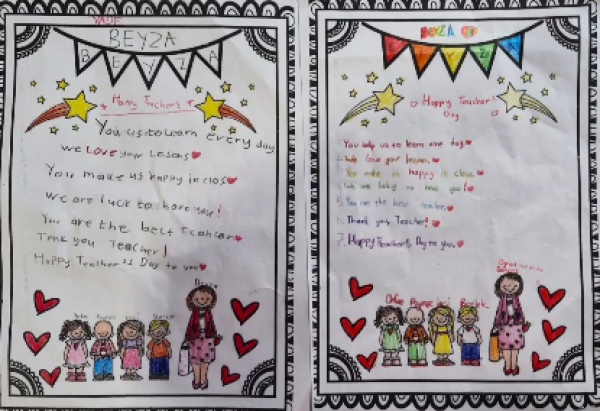 BEYZA
BEYZA
Happy Teacher's
You us to learn every day
we Love your Lesons
You make us happy in clos
we are luck to have you!
You are the best teahcer
Tenk you Teacher!
Happy Teather's Day to you
BEYZA
Happy Teacher's
Day
1. You help us to learn eve day.
2. We love your lessons.
3. You make us happy in class.
4. We are lucky to have you!
5. You are the best teacher.
6. Thank you, Teacher!
7. Happy Teacher's Day to you.